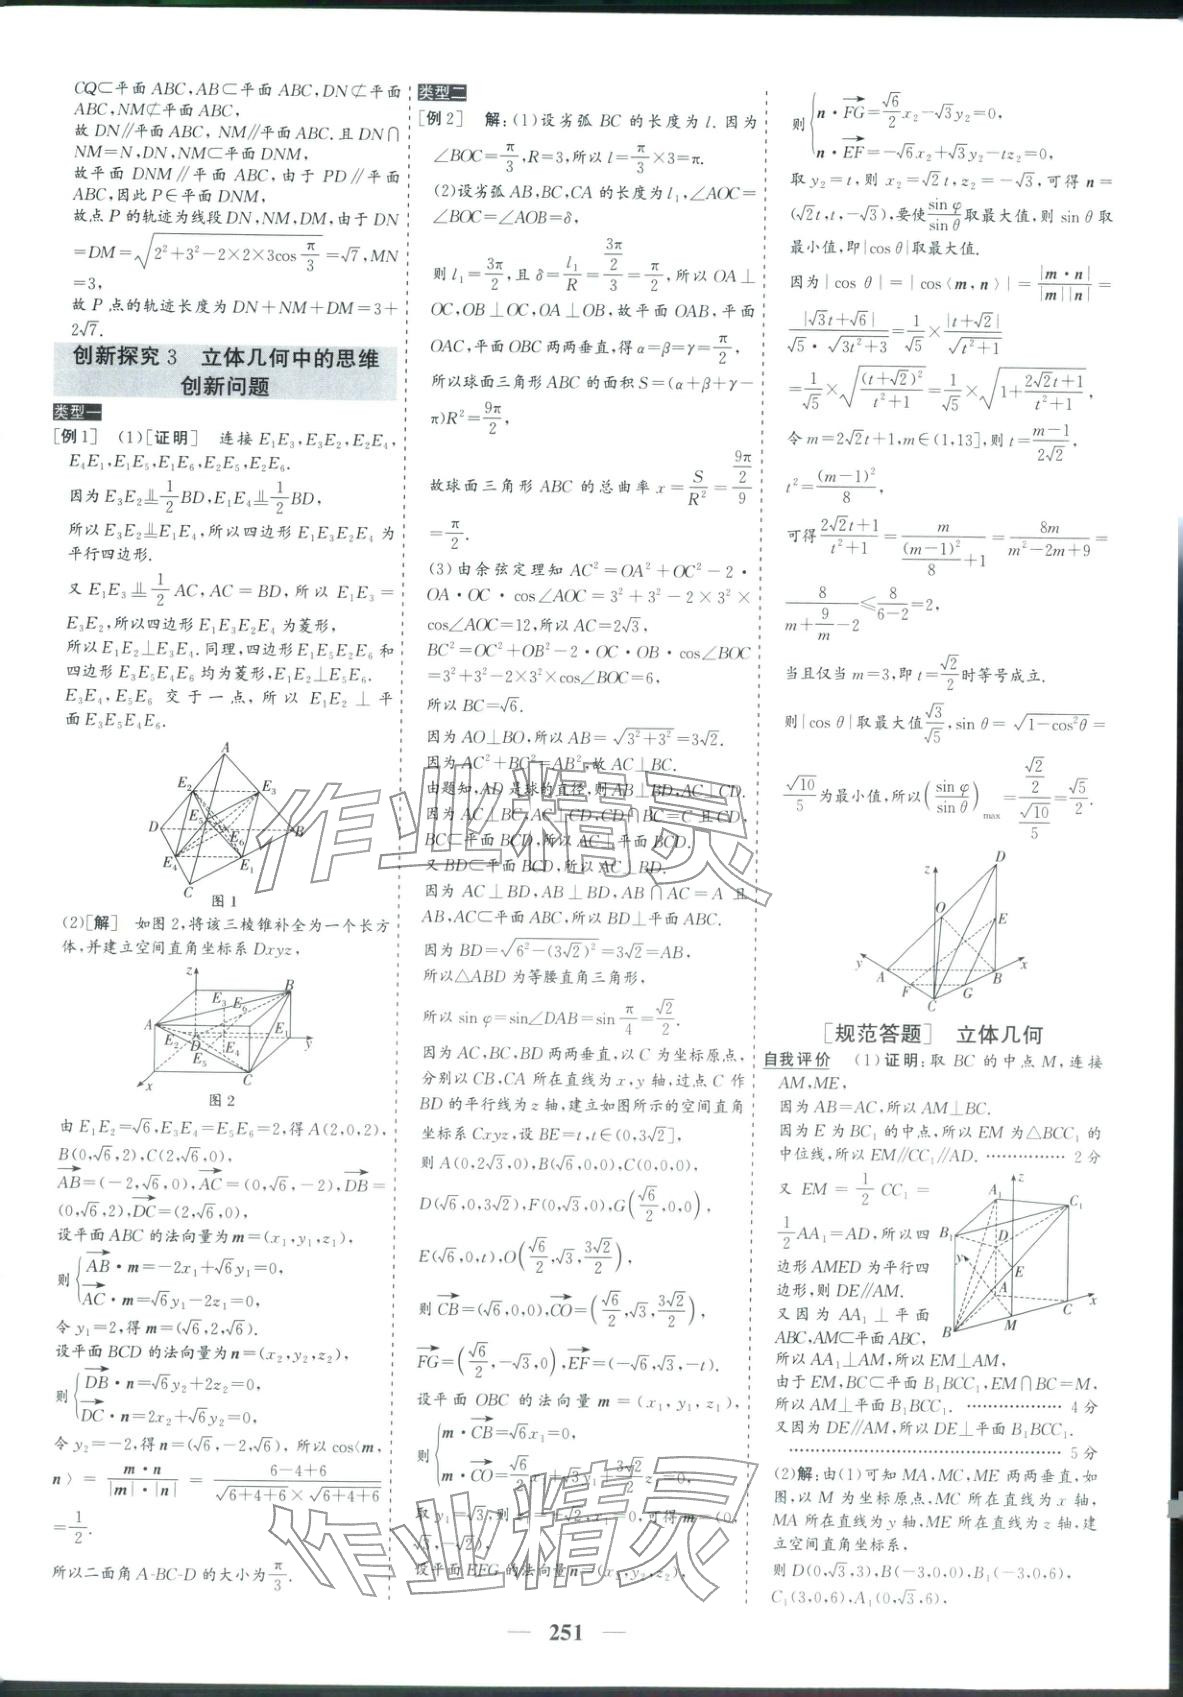 CQ⊂平面 ABC,AB⊂平面 ABC,DN⊄平面
ABC,NM⊄平面 ABC,
故 DN∥平面 ABC, NM∥平面 ABC.且 DN∩
NM=N,DN,NM⊂平面 DNM,
故平面 DNM∥平面 ABC,由于 PD∥平面
ABC,因此 P∈平面 DNM,
故点 P 的轨迹为线段 DN,NM,DM,由于 DN
=DM=√(2²+3²-2×2×3cos π/3)=√7,MN
=3,
故 P 点的轨迹长度为 DN+NM+DM=3+
2√7.
创新探究 3 立体几何中的思维
创新问题
类型一
[例1] (1)[证明] 连接 E₁E₃,E₃E₂,E₂E₄,
E₄E₁,E₁E₅,E₁E₆,E₂E₅,E₂E₆.
因为 E₃E₂⊥∥1/2 BD,E₁E₄⊥∥1/2 BD,
所以 E₃E₂⊥∥E₁E₄,所以四边形 E₁E₃E₂E₄ 为
平行四边形.
又 E₁E₃⊥∥1/2 AC,AC=BD,所以 E₁E₃=
E₃E₂,所以四边形 E₁E₃E₂E₄ 为菱形,
所以 E₁E₂⊥E₃E₄.同理,四边形 E₁E₅E₂E₆ 和
四边形 E₃E₅E₄E₆ 均为菱形,E₁E₂⊥E₅E₆.
E₃E₄,E₅E₆ 交于一点,所以 E₁E₂⊥平
面 E₃E₅E₄E₆.
A
E₂ E₃
D E₅ B
E₆
E₄ E₁
C
图 1
(2)[解] 如图 2,将该三棱锥补全为一个长方
体,并建立空间直角坐标系 Dxyz,
z
B
E₃
E₆
A
E₂ D E₁
E₅ E₄ y
x C
图 2
由 E₁E₂=√6,E₃E₄=E₅E₆=2,得 A(2,0,2),
B(0,√6,2),C(2,√6,0),
AB=(-2,√6,0),AC=(0,√6,-2),DB=
(0,√6,2),DC=(2,√6,0),
设平面 ABC 的法向量为 m=(x₁,y₁,z₁),
则{AB·m=-2x₁+√6y₁=0,
AC·m=√6y₁-2z₁=0,
令 y₁=2,得 m=(√6,2,√6).
设平面 BCD 的法向量为 n=(x₂,y₂,z₂),
则{DB·n=√6y₂+2z₂=0,
DC·n=2x₂+√6y₂=0,
令 y₂=-2,得 n=(√6,-2,√6),所以 cos⟨m,
n⟩=m·n/|m|·|n|=6-4+6/√(6+4+6)×√(6+4+6)
=1/2.
所以二面角 A-BC-D 的大小为 π/3.
类型二
[例2] 解:(1)设劣弧 BC 的长度为 l.因为
∠BOC=π/3,R=3,所以 l=π/3×3=π.
(2)设劣弧 AB,BC,CA 的长度为 l₁,∠AOC=
∠BOC=∠AOB=δ,
则 l₁=3π/2,且 δ=l₁/R=(3π/2)/3=π/2,所以 OA⊥
OC,OB⊥OC,OA⊥OB,故平面 OAB,平面
OAC,平面 OBC 两两垂直,得 α=β=γ=π/2,
所以球面三角形 ABC 的面积 S=(α+β+γ-
π)R²=9π/2,
故球面三角形 ABC 的总曲率 x=S/R²=(9π/2)/9
=π/2.
(3)由余弦定理知 AC²=OA²+OC²-2·
OA·OC·cos∠AOC=3²+3²-2×3²×
cos∠AOC=12,所以 AC=2√3,
BC²=OC²+OB²-2·OC·OB·cos∠BOC
=3²+3²-2×3²×cos∠BOC=6,
所以 BC=√6.
因为 AO⊥BO,所以 AB=√(3²+3²)=3√2.
因为 AC²+BC²=AB²,故 AC⊥BC.
由题知,AD 是球的直径,则 AB⊥BD,AC⊥CD.
因为 AC⊥BC,AC⊥CD,CD∩BC=C 且 CD,
BC⊂平面 BCD,所以 AC⊥平面 BCD.
又 BD⊂平面 BCD,所以 AC⊥BD.
因为 AC⊥BD,AB⊥BD,AB∩AC=A 且
AB,AC⊂平面 ABC,所以 BD⊥平面 ABC.
因为 BD=√(6²-(3√2)²)=3√2=AB,
所以△ABD 为等腰直角三角形,
所以 sin φ=sin∠DAB=sin π/4=√2/2.
因为 AC,BC,BD 两两垂直,以 C 为坐标原点,
分别以 CB,CA 所在直线为 x,y 轴,过点 C 作
BD 的平行线为 z 轴,建立如图所示的空间直角
坐标系 Cxyz,设 BE=t,t∈(0,3√2],
则 A(0,2√3,0),B(√6,0,0),C(0,0,0),
D(√6,0,3√2),F(0,√3,0),G(√6/2,0,0),
E(√6,0,t),O(√6/2,√3,3√2/2),
则 CB=(√6,0,0),CO=(√6/2,√3,3√2/2),
FG=(√6/2,-√3,0),EF=(-√6,√3,-t).
设平面 OBC 的法向量 m=(x₁,y₁,z₁),
则{m·CB=√6x₁=0,
m·CO=√6/2 x₁+√3y₁+3√2/2 z₁=0,
取 y₁=√3,则 z₁=-√2,x₁=0,可得 m=(0,
√3,-√2).
设平面 EFG 的法向量 n=(x₂,y₂,z₂),
则{n·FG=√6/2 x₂-√3y₂=0,
n·EF=-√6x₂+√3y₂-tz₂=0,
取 y₂=t,则 x₂=√2t,z₂=-√3,可得 n=
(√2t,t,-√3),要使 sin φ/sin θ 取最大值,则 sin θ 取
最小值,即|cos θ|取最大值.
因为|cos θ|=|cos⟨m,n⟩|=|m·n|/|m||n|=
|√3t+√6|/√5·√(3t²+3)=1/√5×|t+√2|/√(t²+1)
=1/√5×√((t+√2)²/t²+1)=1/√5×√(1+2√2t+1/t²+1),
令 m=2√2t+1,m∈(1,13],则 t=m-1/2√2,
t²=(m-1)²/8,
可得 2√2t+1/t²+1=m/((m-1)²/8+1)=8m/m²-2m+9=
8/(m+9/m-2)≤8/6-2=2,
当且仅当 m=3,即 t=√2/2 时等号成立.
则|cos θ|取最大值 √3/√5,sin θ=√(1-cos²θ)=
√10/5 为最小值,所以(sin φ/sin θ)max=(√2/2)/(√10/5)=√5/2.
z D
O
E
y
A B x
F G
C
[规范答题] 立体几何
自我评价 (1)证明:取 BC 的中点 M,连接
AM,ME,
因为 AB=AC,所以 AM⊥BC.
因为 E 为 BC₁ 的中点,所以 EM 为△BCC₁ 的
中位线,所以 EM∥CC₁∥AD. ……………2分
又 EM=1/2 CC₁=
1/2 AA₁=AD,所以四
边形 AMED 为平行四
边形,则 DE∥AM.
又因为 AA₁⊥平面
ABC,AM⊂平面 ABC,
z
A₁ C₁
B₁ y D
E
A
C x
B M
所以 AA₁⊥AM,所以 EM⊥AM,
由于 EM,BC⊂平面 B₁BCC₁,EM∩BC=M,
所以 AM⊥平面 B₁BCC₁. ………………4分
又因为 DE∥AM,所以 DE⊥平面 B₁BCC₁.
………………………………………………5分
(2)解:由(1)可知 MA,MC,ME 两两垂直,如
图,以 M 为坐标原点,MC 所在直线为 x 轴,
MA 所在直线为 y 轴,ME 所在直线为 z 轴,建
立空间直角坐标系,
则 D(0,√3,3),B(-3,0,0),B₁(-3,0,6),
C₁(3,0,6),A₁(0,√3,6),
作业精灵
作业精灵
— 251 —